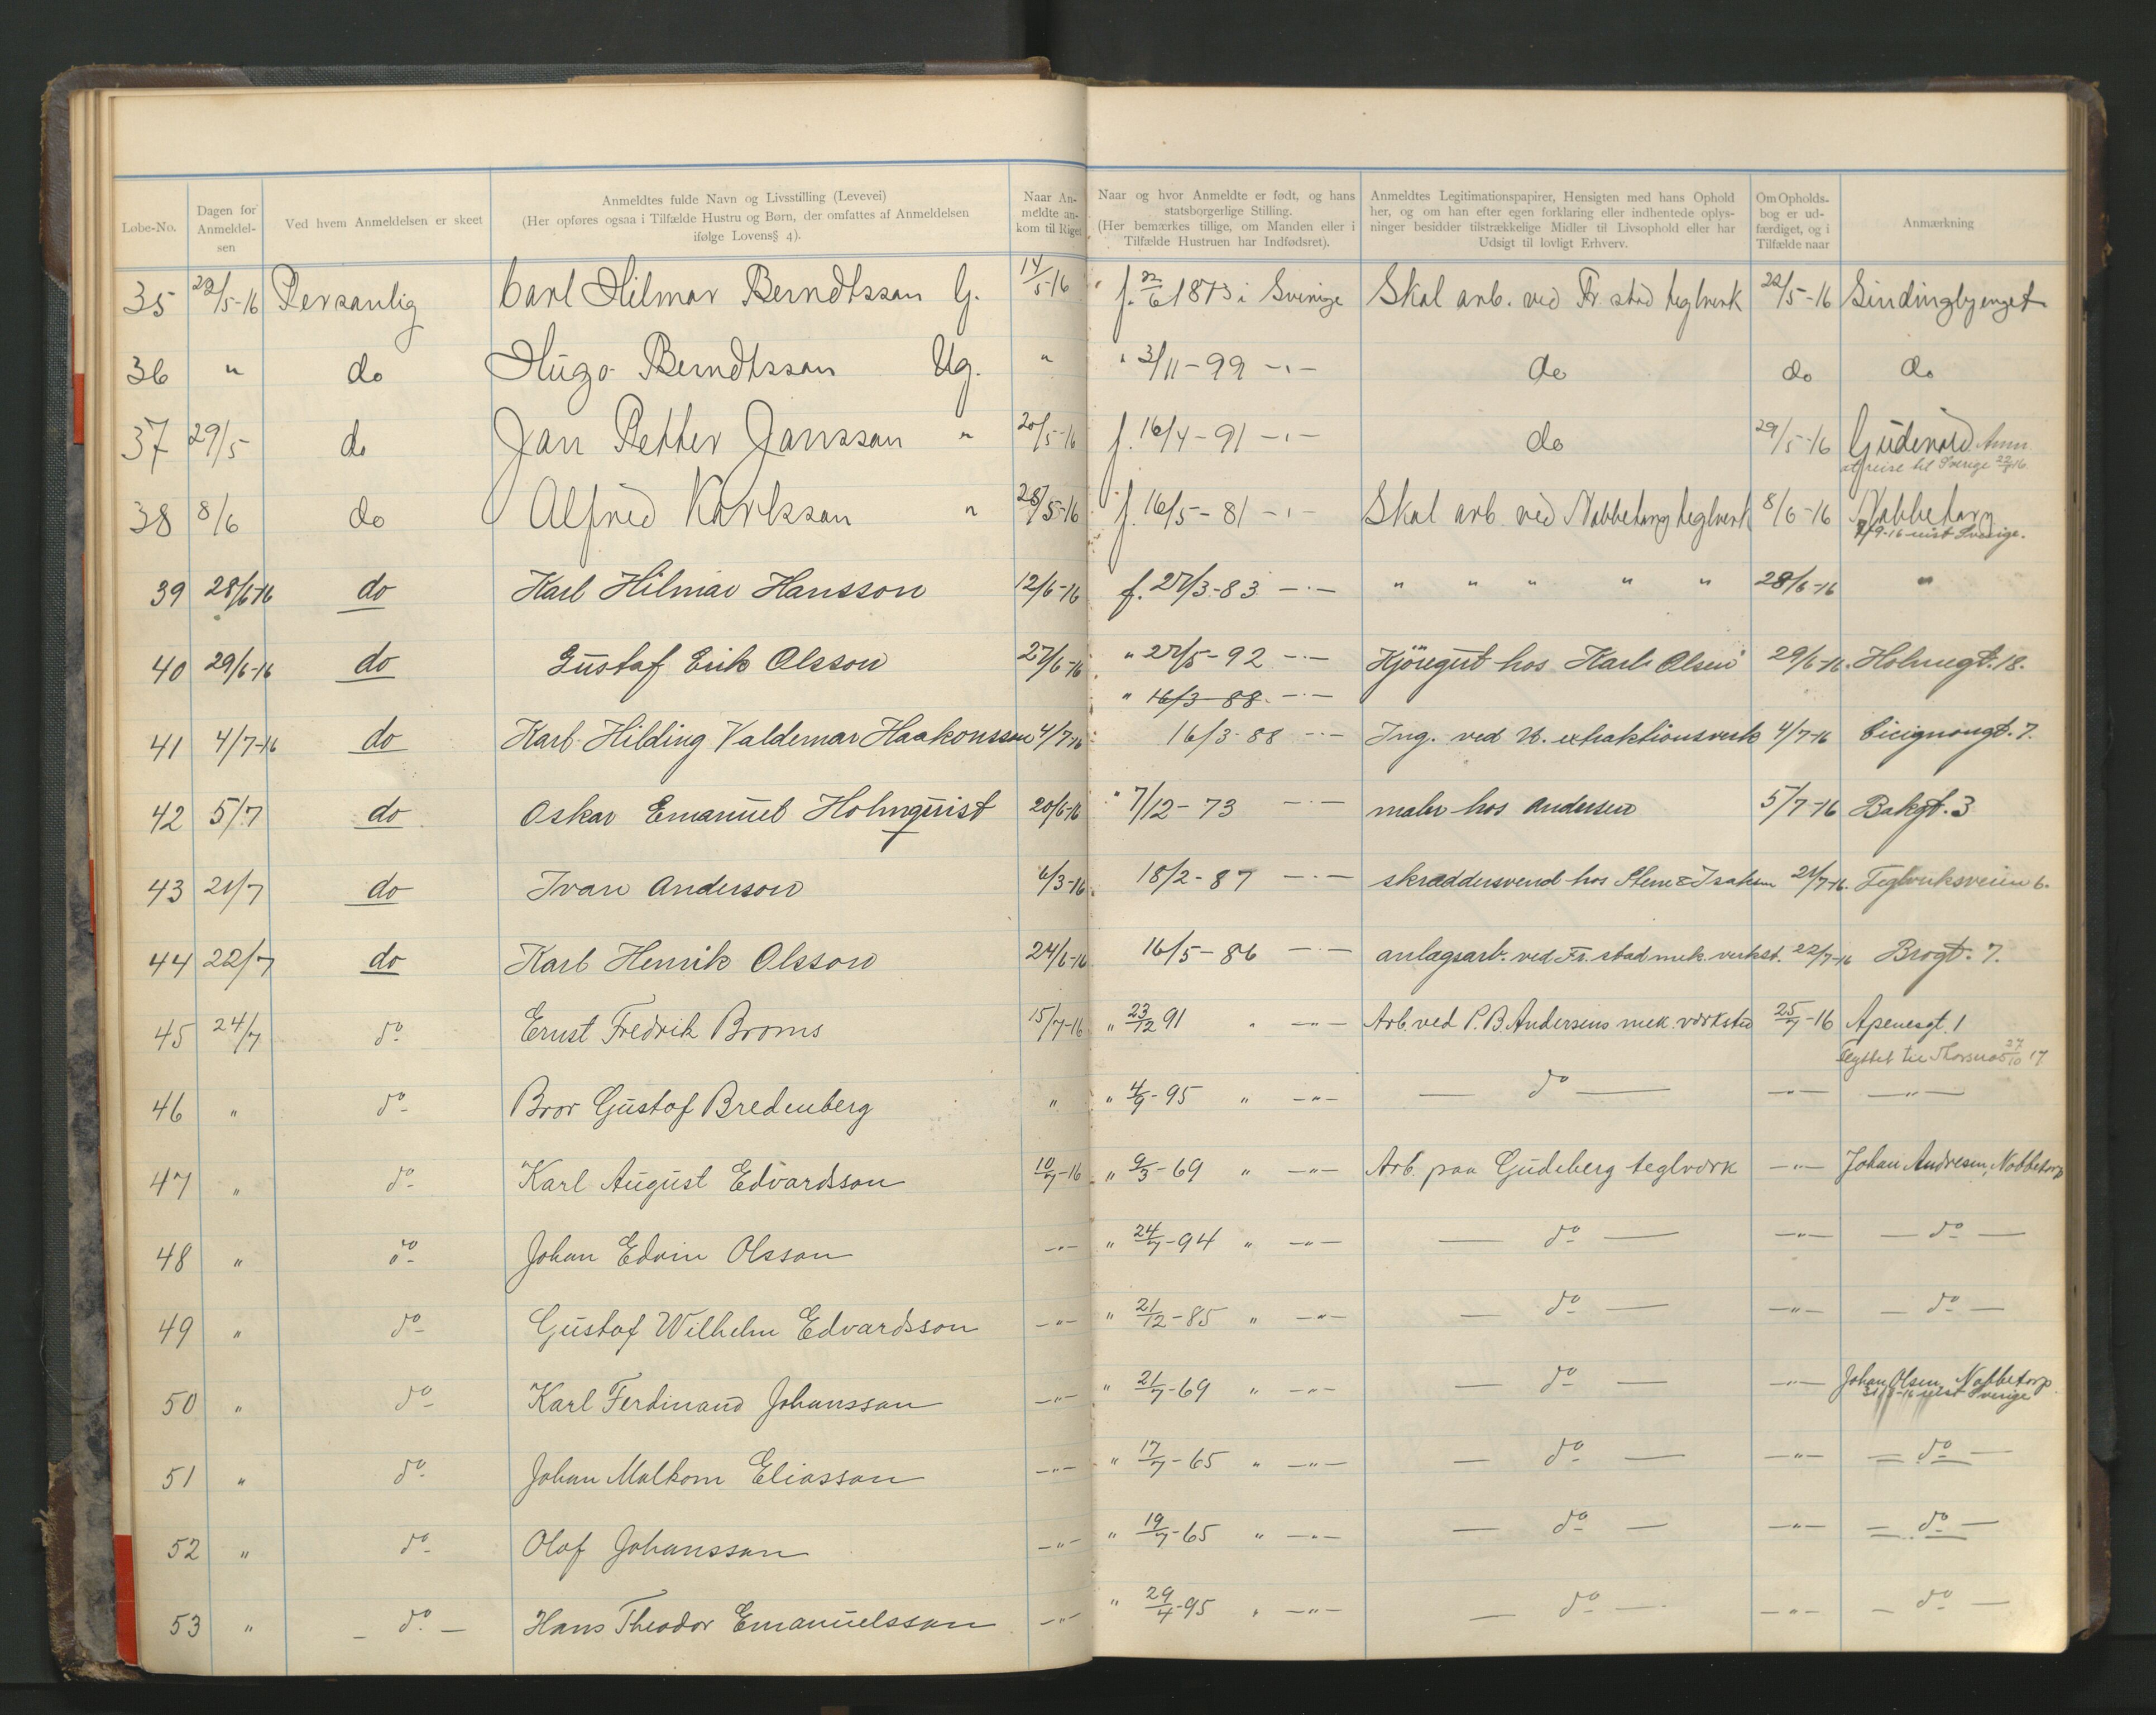 Løbe-No. Dagen for Anmeldel-sen Ved hvem Anmeldelsen er skeet Anmeldtes fulde Navn og Livsstilling (Levevei) (Her opføres ogsaa i Tilfælde Hustru og Børn, der omfattes af Anmeldelsen ifølge Lovens§ 4). Naar An-meldte an-kom til Riget Naar og hvor Anmeldte er født, og hans statsborgerlige Stilling. (Her bemærkes tillige, om Manden eller i Tilfælde Hustruen har Indfødsret). Anmeldtes Legitimationspapirer, Hensigten med hans Ophold her, og om han efter egen forklaring eller indhentede oplys-ninger besidder tilstrækkelige Midler til Livsophold eller har Udsigt til lovligt Erhverv. Om Opholds-bog er ud-færdiget, og i Tilfælde naar Anmærkning
35 22/5-16 Personlig Carl Hilmar Berndtsson G. 14/5-16 f. 22/6 1873 i Sverige Skal arb. ved Fr.stad teglverk 22/5-16
36 " do Hugo Berndtsson Ug. " " 3/11-99 -"- do do do
37 29/5 do Jan Petter Jansson " 20/5-16 f. 16/4-91 -"- do 29/5-16
afreise til Sverige
38 8/6 do Alfred Karlsson " 28/5-16 f. 16/5-81 -"- Skal arb. ved Nabbetorp teglverk 8/6-16 Nabbetorp
9-16 reist Sverige.
39 28/6-16 do Karl Hilmar Hansson 12/6-16 f. 27/3-83 -"- " " " " " 28/6-16 "
40 29/6-16 do Gustaf Erik Olsson 27/6-16 " 27/5-92 -"- Kjöregut hos Karl Olsen 29/6-16. Holmegt. 18.
" 16/3-88. -"-
41 4/7-16 do Karl Hilding Valdemar Haakonsson 4/7-16 16/3-88 -"- Ing. ved N. extraktionsverk 4/7-16 Cicignongt. 7.
42 5/7 do Oskar Emanuel Holmquist 20/6-16 " 7/12-73 -"- maler hos Andersen 5/7-16 Bakgt. 3
43 21/7 do Ivan Anderson 6/3-16. 18/2-87 -"- skræddersvend hos & Isaksen 21/7-16. Teglverksveien 6.
44 22/7 do Karl Henrik Olsson 24/6-16 16/5-86 -"- anlagsarb. ved Fr.stad mek. verkst. 22/7-16 Brogt. 7.
45 24/7 do Ernst Fredrik Broms 15/7-16 " 23/12 91 " -"- Arb. ved P. B. Andersens mek. værksted 25/7-16 Apenesgt. 1
flyttet til Thorsnes 27/10 17
46 " do Bror Gustaf Bredenberg " " 4/9-95 " -"- — do — -"- -"-
47 " do Karl August Edvardsson 10/7-16 " 9/3-69 " -"- Arb. paa Gudeberg teglværk -"- Johan Andresen, Nabbetorp
48 " do Johan Edvin Olsson -"- " 24/7-94 " -"- — do — -"- — do —
49 " do Gustaf Wilhelm Edvardsson -"- " 21/12-85 " -"- — do — -"- — do —
50 " do Karl Ferdinand Johansson -"- " 21/7-69 " -"- — do — -"- Johan Olsen, Nabbetorp.
-16 reist Sverige
51 " do Johan Malkom Eliasson -"- " 17/7-65 " -"- — do — -"- — do —
52 " do Olof Johansson -"- " 19/7-65 " -"- — do — -"- — do —
53 " — do — Hans Theodor Emanuelsson -"- " 29/4-95 " -"- — do — -"- — do —